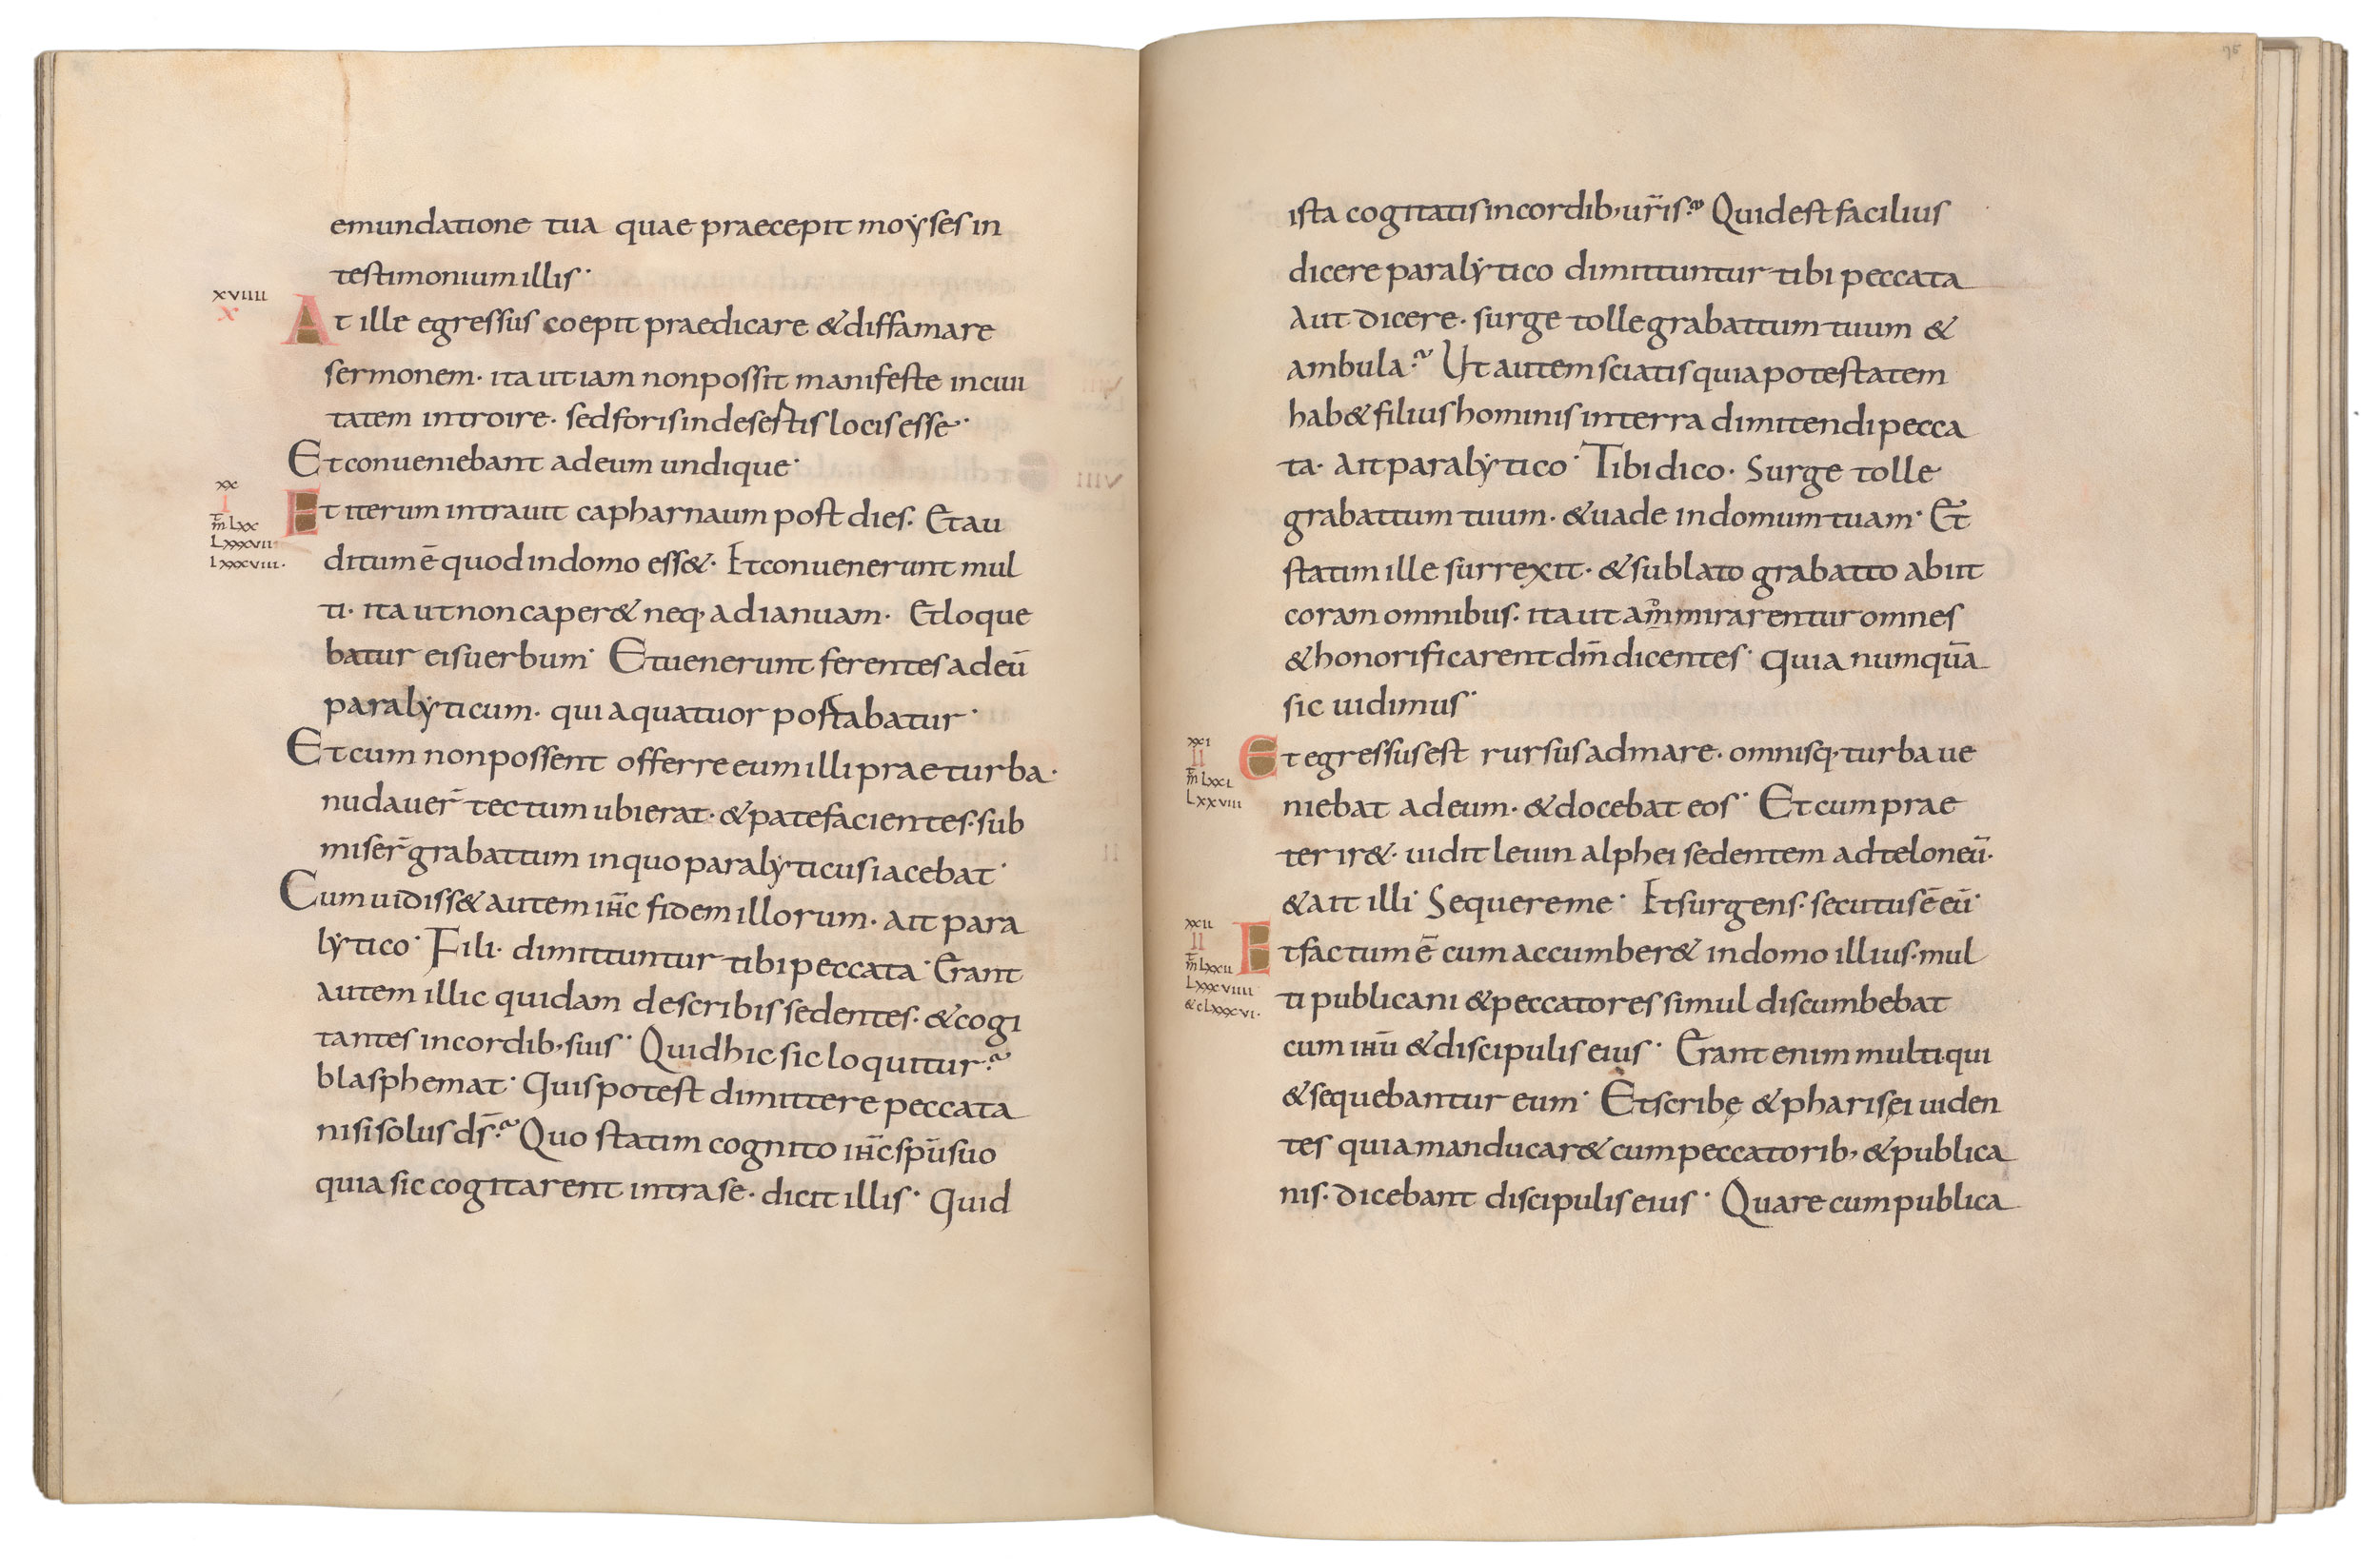 emundatione tua quae praecepit moẏses in
testimonium illis·
xviiii
x
At ille egressus coepit praedicare & diffamare
sermonem· ita ut iam non possit manifeste in ciui
tatem introire· sed foris in desertis locis esse·
Et conueniebant ad eum undique·
xx
I
mt Lxx
Lxxxvii
Lxxxviii·
Et iterum intrauit capharnaum post dies· Et au
ditum ē quod in domo ess&· Et conuenerunt mul
ti· ita ut non caper& neq, ad ianuam· Et loque
batur eis uerbum· Et uenerunt ferentes ad eū
paralẏticum· qui a quatuor portabatur·
Et cum non possent offerre eum illi prae turba·
nudauer̄ tectum ubi erat· & patefacientes· sub
miser̄ grabattum in quo paralẏticus iacebat·
Cum uidiss& autem ih̄c fidem illorum· ait para
lẏtico· Fili· dimittuntur tibi peccata· Erant
autem illic quidam de scribis sedentes· & cogi
tantes in cordib, suis· Quid hic sic loquitur?
blasphemat· Quis potest dimittere peccata
nisi solus ds̄? Quo statim cognito ih̄c spū suo
quia sic cogitarent intra se· dicit illis· Quid
75
ista cogitatis in cordib, ur̄is? Quid est facilius
dicere paralẏtico dimittuntur tibi peccata
Aut dicere· surge tolle grabattum tuum &
ambula? Ut autem sciatis quia potestatem
hab& filius hominis in terra dimitendi pecca
ta· Ait paralẏtico· Tibi dico· Surge tolle
grabattum tuum· & uade in domum tuam· Et
statim ille surrexit· & sublato grabatto abiit
coram omnibus· ita ut ammirarentur omnes
& honorificarent dm̄ dicentes· Quia numquā
sic uidimus·
xxi
II
mt Lxxi
Lxxviii
Et egressus est rursus ad mare· omnisq, turba ue
niebat ad eum· & docebat eos· Et cum prae
terir&· uidit leuin alphei sedentem ad teloneū·
& ait illi· Sequere me· Et surgens· secutus ē eū·
xxii
II
mt Lxxii
Lxxxviiii
& cLxxxvi·
Et factum ē cum accumber& in domo illius· mul
ti publicani & peccatores simul discumbebat
cum ihū & discipulis eius· Erant enim multi· qui
& sequebantur eum· Et scribę & pharisęi uiden
tes quia manducar& cum peccatorib, & publica
nis· dicebant discipulis eius· Quare cum publica